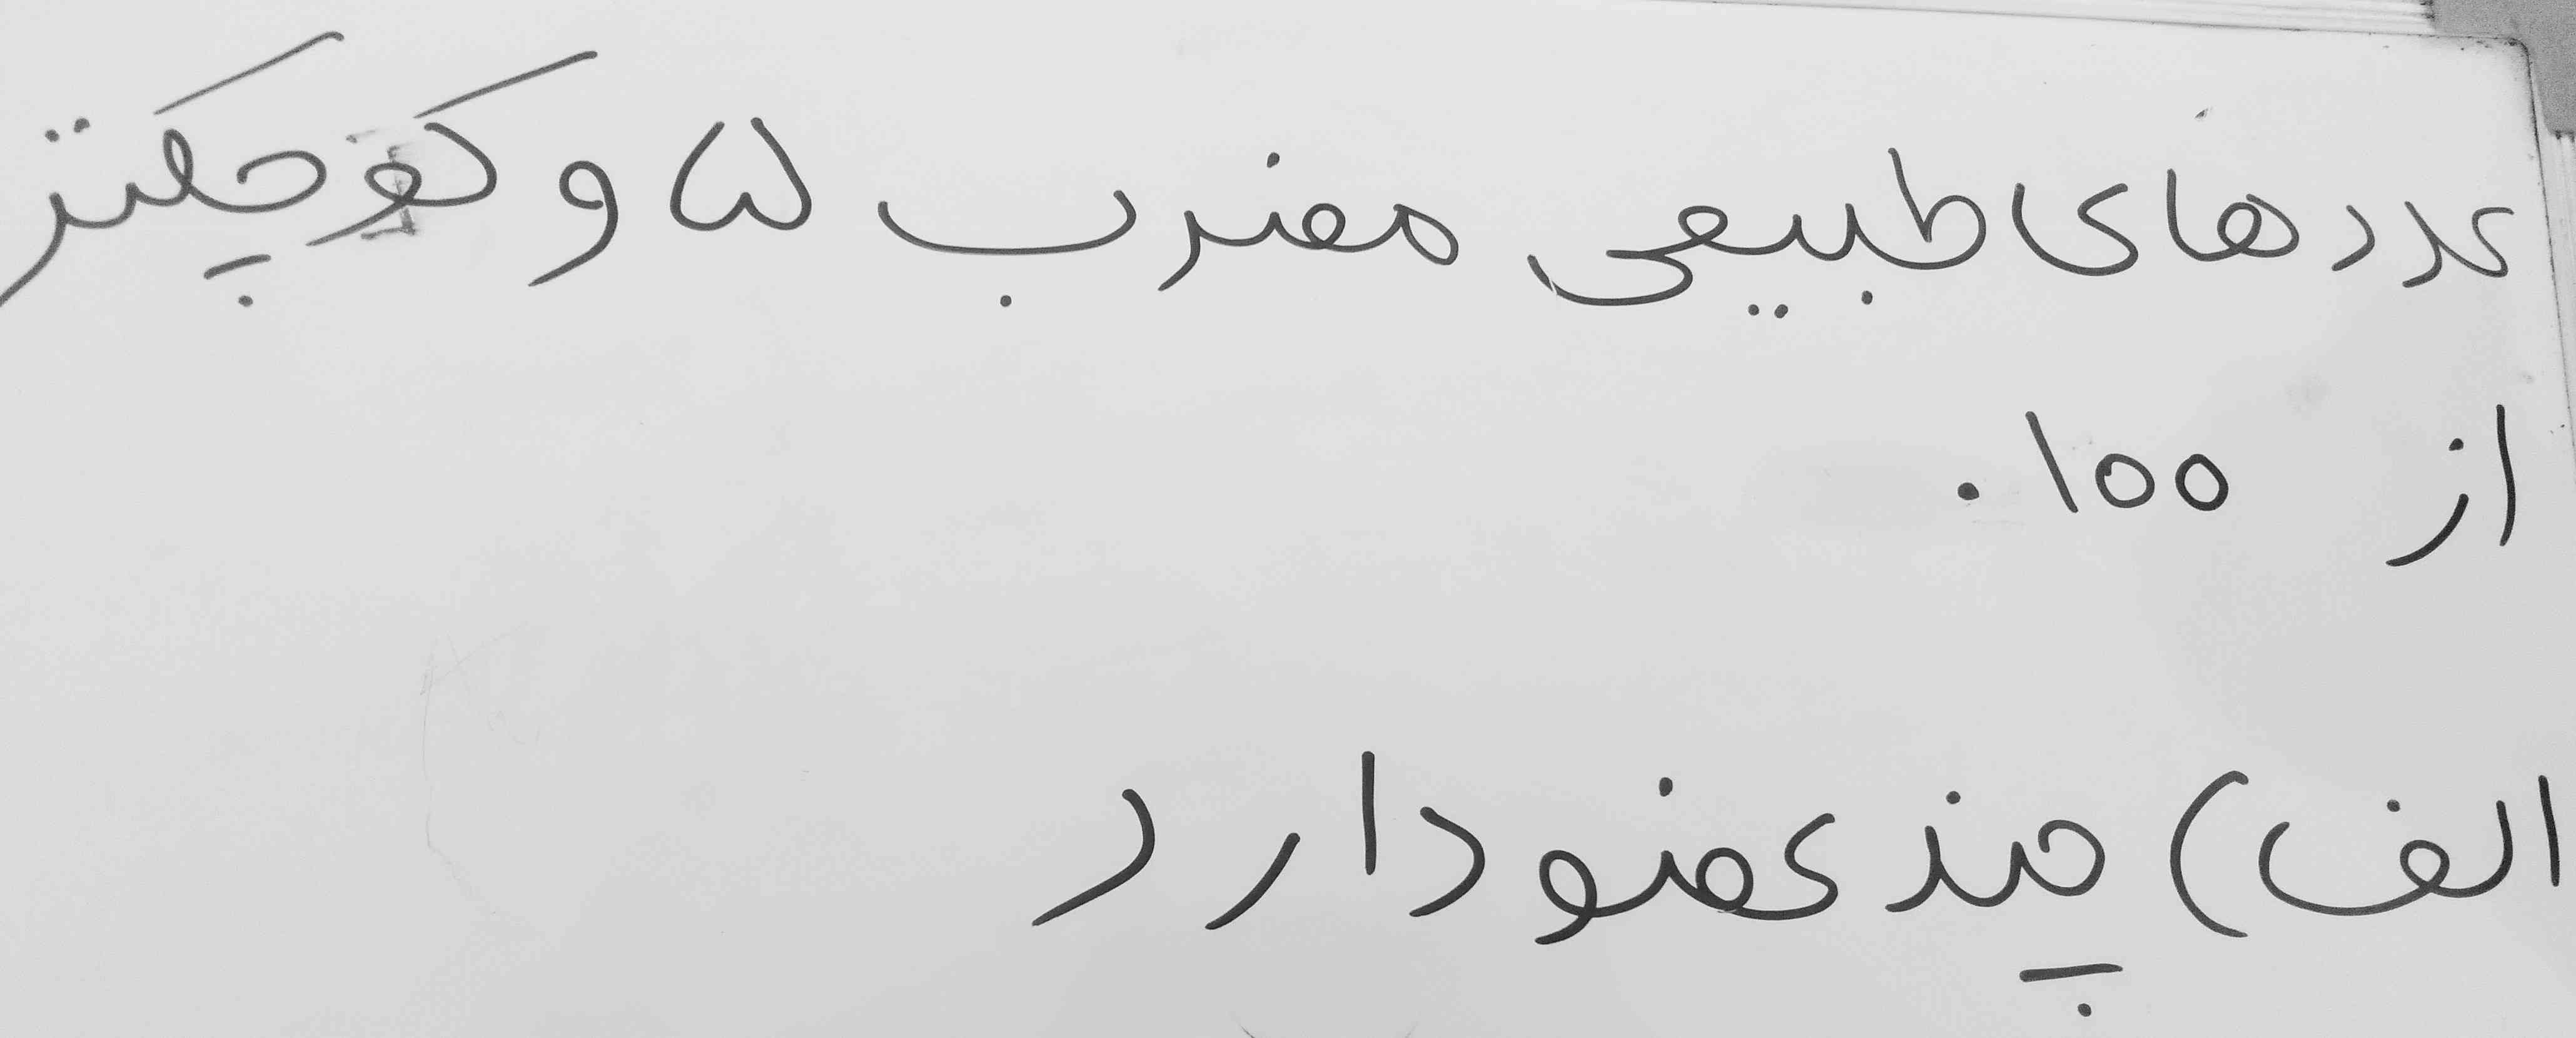 عددهای طبیعی مضرب ۵ و کوچکتر
از ۱۰۰.
الف) چند عضو دارد